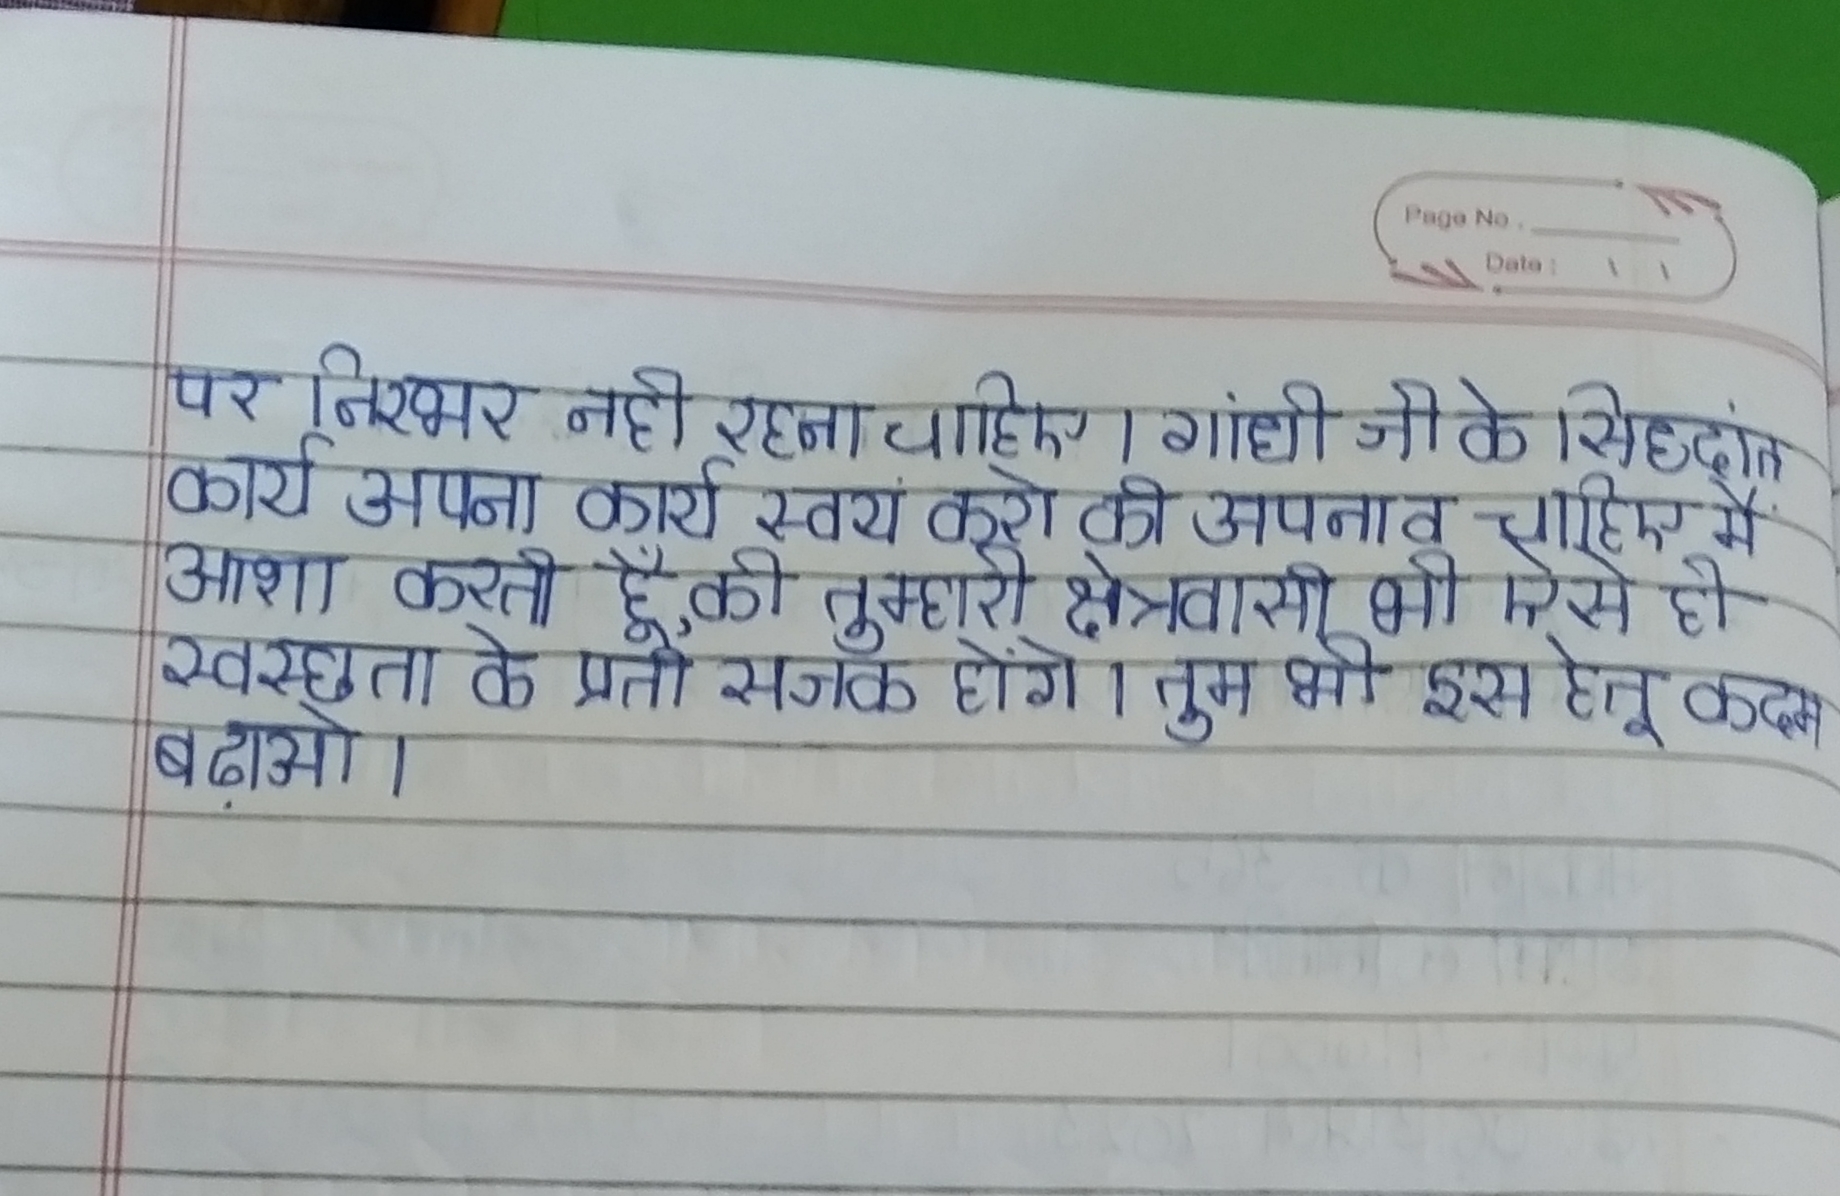 Page No.
Date :
पर निरभर नही रहना चाहिए। गांधी जी के सिध्दांत
कार्य अपना कार्य स्वयं करो की अपनाव चाहिए मैं
आशा करती हूँ, की तुम्हारी क्षेत्रवासी भी ऐसे ही
स्वस्छता के प्रती सजक होंगे। तुम भी इस हेतू कदम
बढ़ाओ।